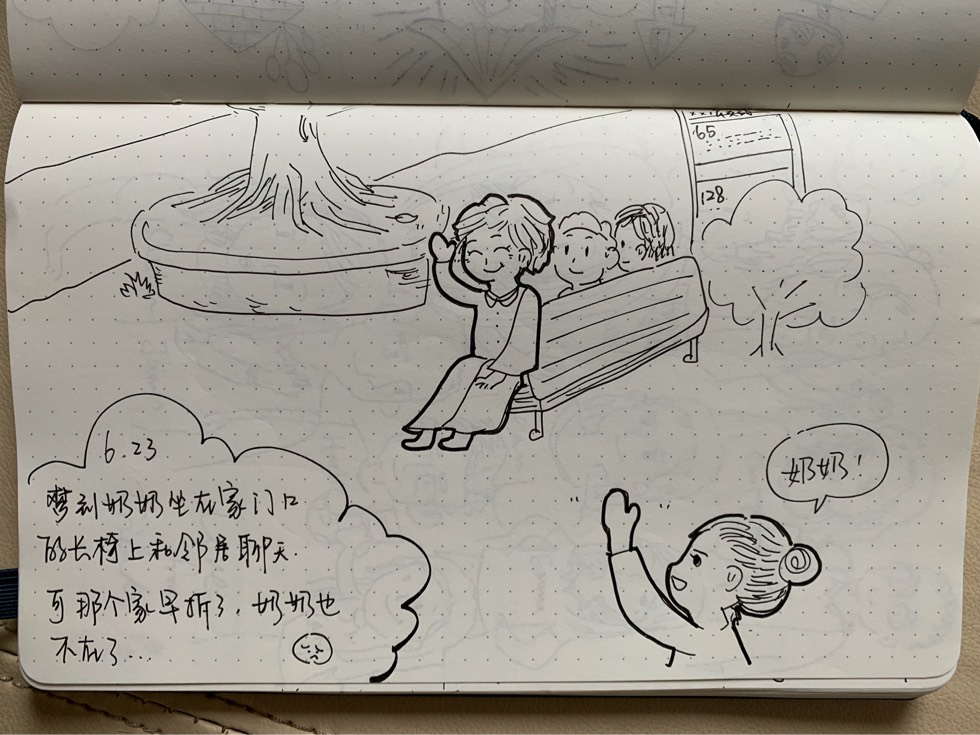 65
128
奶奶!
6.23
梦到奶奶坐在家门口
的长椅上和邻居聊天.
可那个家早拆了,奶奶也
不在了...